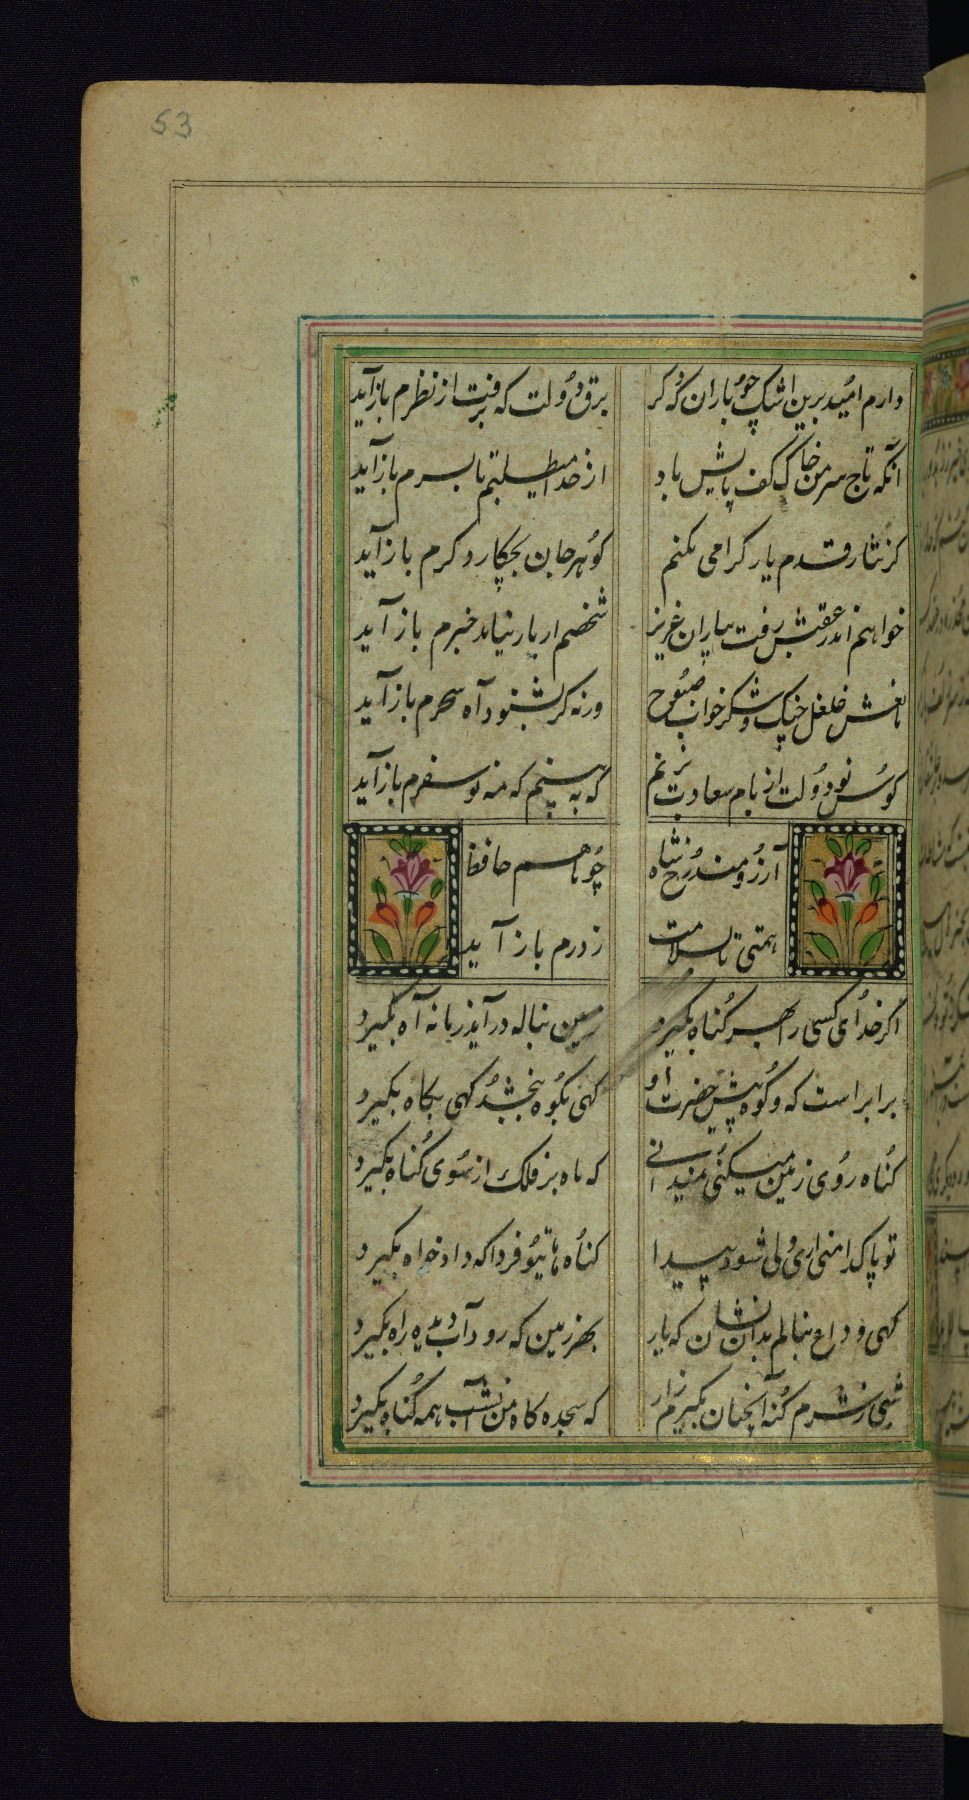 53
دارم امید برین اشک چو باران که کر برق دولت که برفت از نظرم باز آید
آنکه تاج سر من خاک کف پایش باد از خدا میطلبم تا بسرم باز آید
کر نثار قدم یار کرامی نکنم کوهر جان بچکار دکرم باز آید
خواهم اندر عقبش رفت بیاران عزیز شخصم ار باز نیاید خبرم باز آید
مانعش غلغل چنک و شکر خواب صبوح ورنه کر بشنود آه سحرم باز آید
کوس نو دولت از بام سعادت بزنم که به بینم که مه نو سفرم باز آید
آرزومند رخ شاه چو ماهم حافظ
همتی تا بسلامت ز درم باز آید
اکر خدای کسی را بهر کناه بکیرد زمین بناله در آید زمانه آه بکیرد
برابر است که و کوه پیش حضرت او کهی بکوه ببخشد کهی بکاه بکیرد
کناه روی زمین میکنی نمیدانی که ماه بر فلک از سوی کناه بکیرد
تو پاکدامنی اری ولی شود پیدا کناه ما تیو فردا که داد خواه بکیرد
کهی وداع بنالم بدان نشان که یار بهر زمین که رود آب دیده راه بکیرد
شبی ز شرم کنه آنچنان بکیرم زار که سجده کاه من امشب همه کناه بکیرد